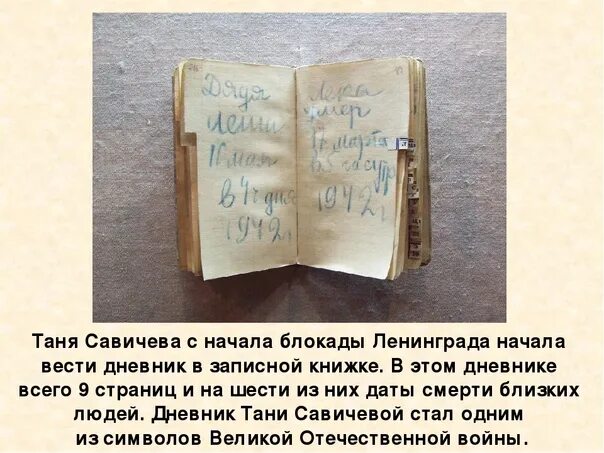 Дядя
Леша
10 мая
в 4 ч дня
1942 г
Лека
умер
17 марта
в 5 час утр
1942 г
Таня Савичева с начала блокады Ленинграда начала
вести дневник в записной книжке. В этом дневнике
всего 9 страниц и на шести из них даты смерти близких
людей. Дневник Тани Савичевой стал одним
из символов Великой Отечественной войны.